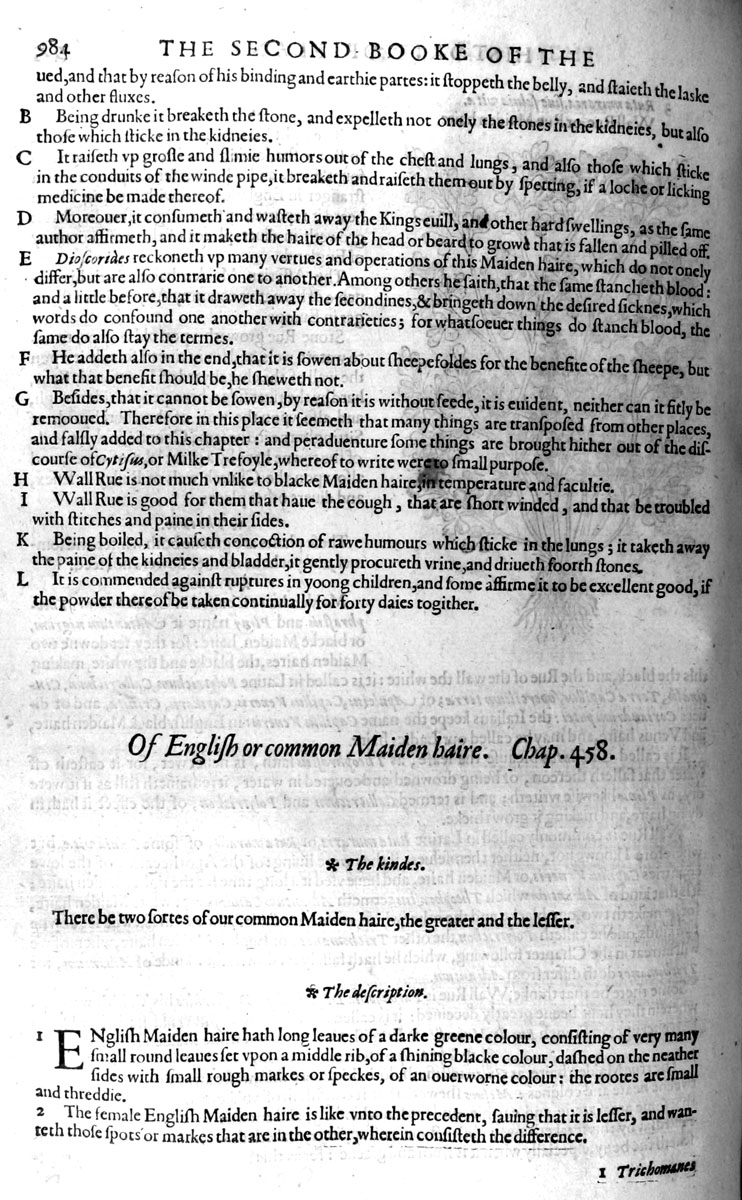 984 THE SECOND BOOKE OF THE
ued,and that by reaſon of his binding and earthie partes: it ſtoppeth the belly, and ſtaieth the laske
and other fluxes.
B Being drunke it breaketh the ſtone, and expelleth not onely the ſtones in the kidneies, but alſo
thoſe which ſticke in the kidneies.
C It raiſeth vp groſſe and ſlimie humors out of the cheſt and lungs, and alſo thoſe which ſticke
in the conduits of the winde pipe,it breaketh and raiſeth them out by ſpetting, if a loche or licking
medicine be made thereof.
D Moreouer,it conſumeth and waſteth away the Kings euill, and other hard ſwellings, as the ſame
author affirmeth, and it maketh the haire of the head or beard to growe that is fallen and pilled off.
E Dioſcorides reckoneth vp many vertues and operations of this Maiden haire, which do not onely
differ,but are alſo contrarie one to another. Among others he ſaith,that the ſame ſtancheth blood:
and a little before,that it draweth away the ſecondines,& bringeth down the deſired ſicknes,which
words do confound one another with contrarieties; for whatſoeuer things do ſtanch blood, the
ſame do alſo ſtay the termes.
F He addeth alſo in the end,that it is ſowen about ſheepefoldes for the benefite of the ſheepe, but
what that benefit ſhould be,he ſheweth not.
G Beſides,that it cannot be ſowen,by reaſon it is without ſeede,it is euident, neither can it fitly be
remooued. Therefore in this place it ſeemeth that many things are tranſpoſed from other places,
and falſly added to this chapter: and peraduenture ſome things are brought hither out of the diſ-
courſe of Cytiſus,or Milke Trefoyle,whereof to write were to ſmall purpoſe.
H Wall Rue is not much vnlike to blacke Maiden haire,in temperature and facultie.
I Wall Rue is good for them that haue the cough, that are ſhort winded, and that be troubled
with ſtitches and paine in their ſides.
K Being boiled, it cauſeth concoction of rawe humours which ſticke in the lungs; it taketh away
the paine of the kidneies and bladder,it gently procureth vrine,and driueth foorth ſtones.
L It is commended againſt ruptures in yoong children,and ſome affirme it to be excellent good, if
the powder thereof be taken continually for forty daies togither.
Of Engliſh or common Maiden haire. Chap. 458.
* The kindes.
There be two ſortes of our common Maiden haire,the greater and the leſſer.
* The deſcription.
1 ENgliſh Maiden haire hath long leaues of a darke greene colour, conſiſting of very many
ſmall round leaues ſet vpon a middle rib,of a ſhining blacke colour, daſhed on the neather
ſides with ſmall rough markes or ſpeckes, of an ouerworne colour: the rootes are ſmall
and threddie.
2 The female Engliſh Maiden haire is like vnto the precedent, ſauing that it is leſſer, and wan-
teth thoſe ſpots or markes that are in the other,wherein conſiſteth the difference.
1 Trichomanes